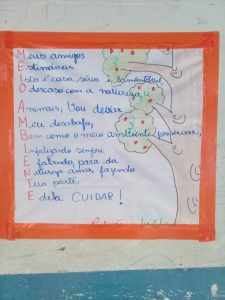 Meus amigos
Estudiosos
Isto é casa séria e lamentável
O descaso com a natureza,
Animais, Vou deixar
Meu desabafo,
Bem como o meio ambiente preservar,
Enfatizando sempre
E falando para da
Natureza amar, fazendo
Tua parte,
E dela CUIDAR!